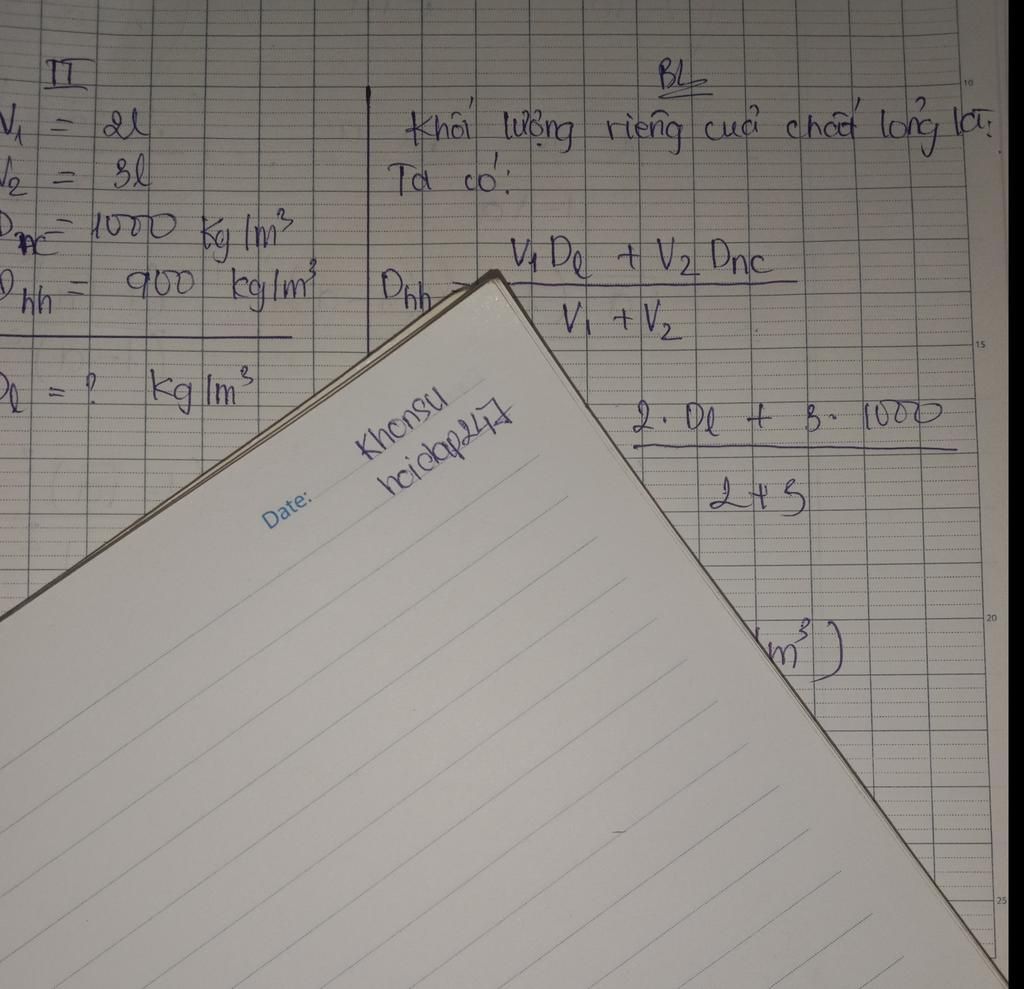 TT
V1 = 2l
V2 = 3l
Dnc = 1000 kg/m³
Dhh = 900 kg/m³
Dl = ? kg/m³
BL
Khối lượng riêng cuả chất lỏng là:
Ta có:
Dhh = V1 Dl + V2 Dnc
V1 + V2
2. Dl + 3. 1000
2 + 3
m³)
Date:
Khonsu
hoidap247
10
15
20
25